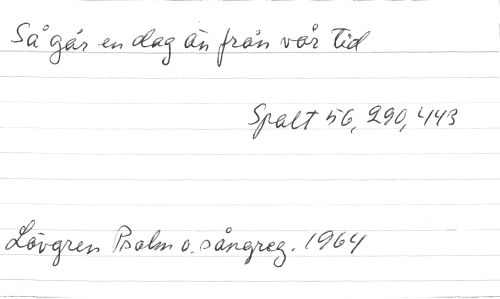 Så går en dag än från vår tid
Spalt 56, 290, 443
Lövgren Psalm o. sångreg. 1964